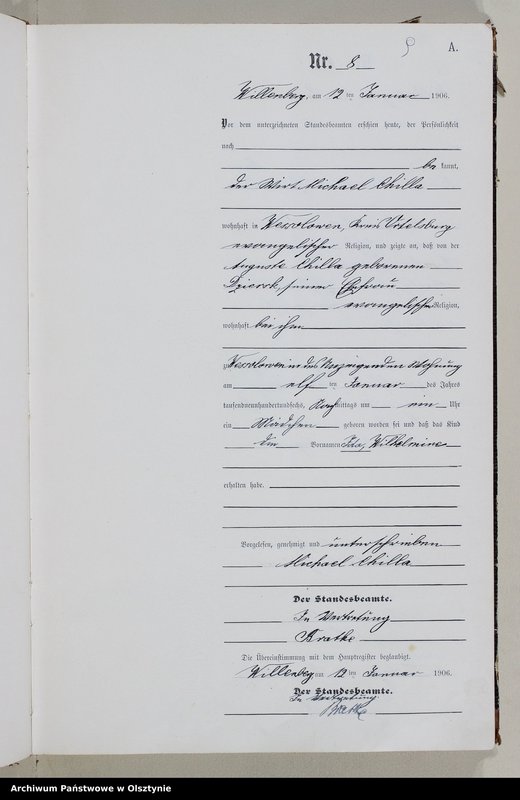 A.
Nr. 8
Willenberg, am 12 ten Januar 1906.
Vor dem unterzeichneten Standesbeamten erschien heute, der Persönlichkeit
nach
be kannt,
der Wirt Michael Chilla
wohnhaft in Wessolowen, Kreis Ortelsburg
evangelischer Religion, und zeigte an, daß von der
Auguste Chilla geborenen
seiner Ehefrau
evangelischer Religion,
wohnhaft bei ihm
zu Wessolowen in des Anzeigenden Wohnung
am elf ten Januar des Jahres
tausendneunhundertundsechs, Nachmittags um ein Uhr
ein Mädchen geboren worden sei und daß das Kind
die Vornamen Ida, Wilhelmine
erhalten habe.
Vorgelesen, genehmigt und unterschrieben
Michael Chilla
Der Standesbeamte.
In Vertretung
Bratke
Die Übereinstimmung mit dem Hauptregister beglaubigt.
Willenberg, am 12 ten Januar 1906.
Der Standesbeamte.
In Vertretung.
Bratke
Archiwum Państwowe w Olsztynie